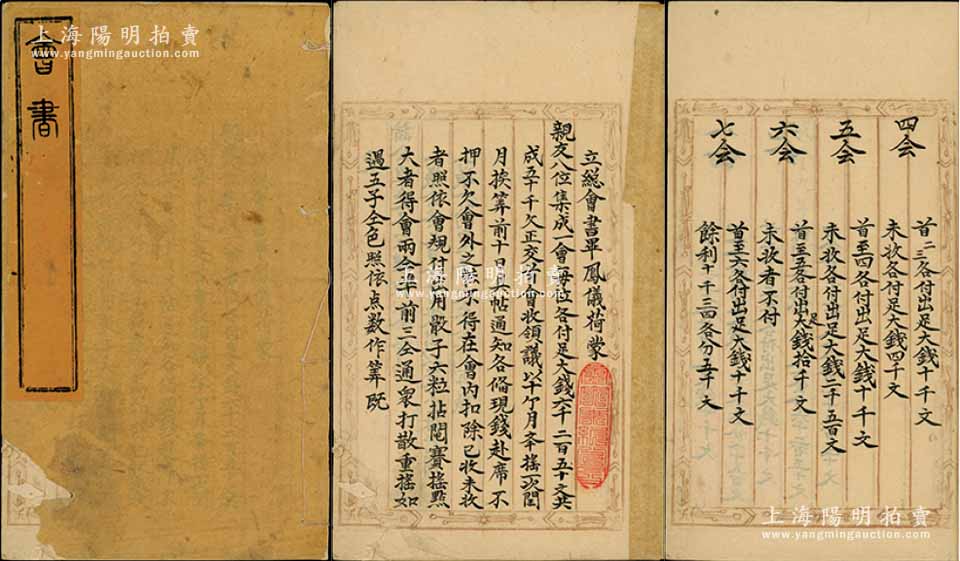 會書
上海陽明拍賣
www.yangmingauction.com
立總會書畢鳳儀荷蒙
親友八位集成一會每位各付足大錢六千二百五十文共
成五十千文正交首會收領議以十个月一搖一次閏
月挨算前十日具帖通知各偹現錢赴席不
押不欠會外之賬不得在會內扣除已收未收
者照依會規付出用骰子六粒拈鬮賽搖點
大者得會兩仝尊前三仝通衆打散重搖如
遇五子仝色照依点數作算旣
上海陽明拍賣
www.yangmingauction.com
上海陽明拍賣
www.yangmingauction.com
四会
首二三各付出足大錢十千文
未收各付足大錢四千文
五会
首至四各付出足大錢十千文
未收各付出足大錢二千五百文
六会
首至五各付出足大錢拾千文
未收者不付
七会
首至六各付出足大錢十千文
餘利十千三四各分五千文
上海陽明拍賣
www.yangmingauction.com